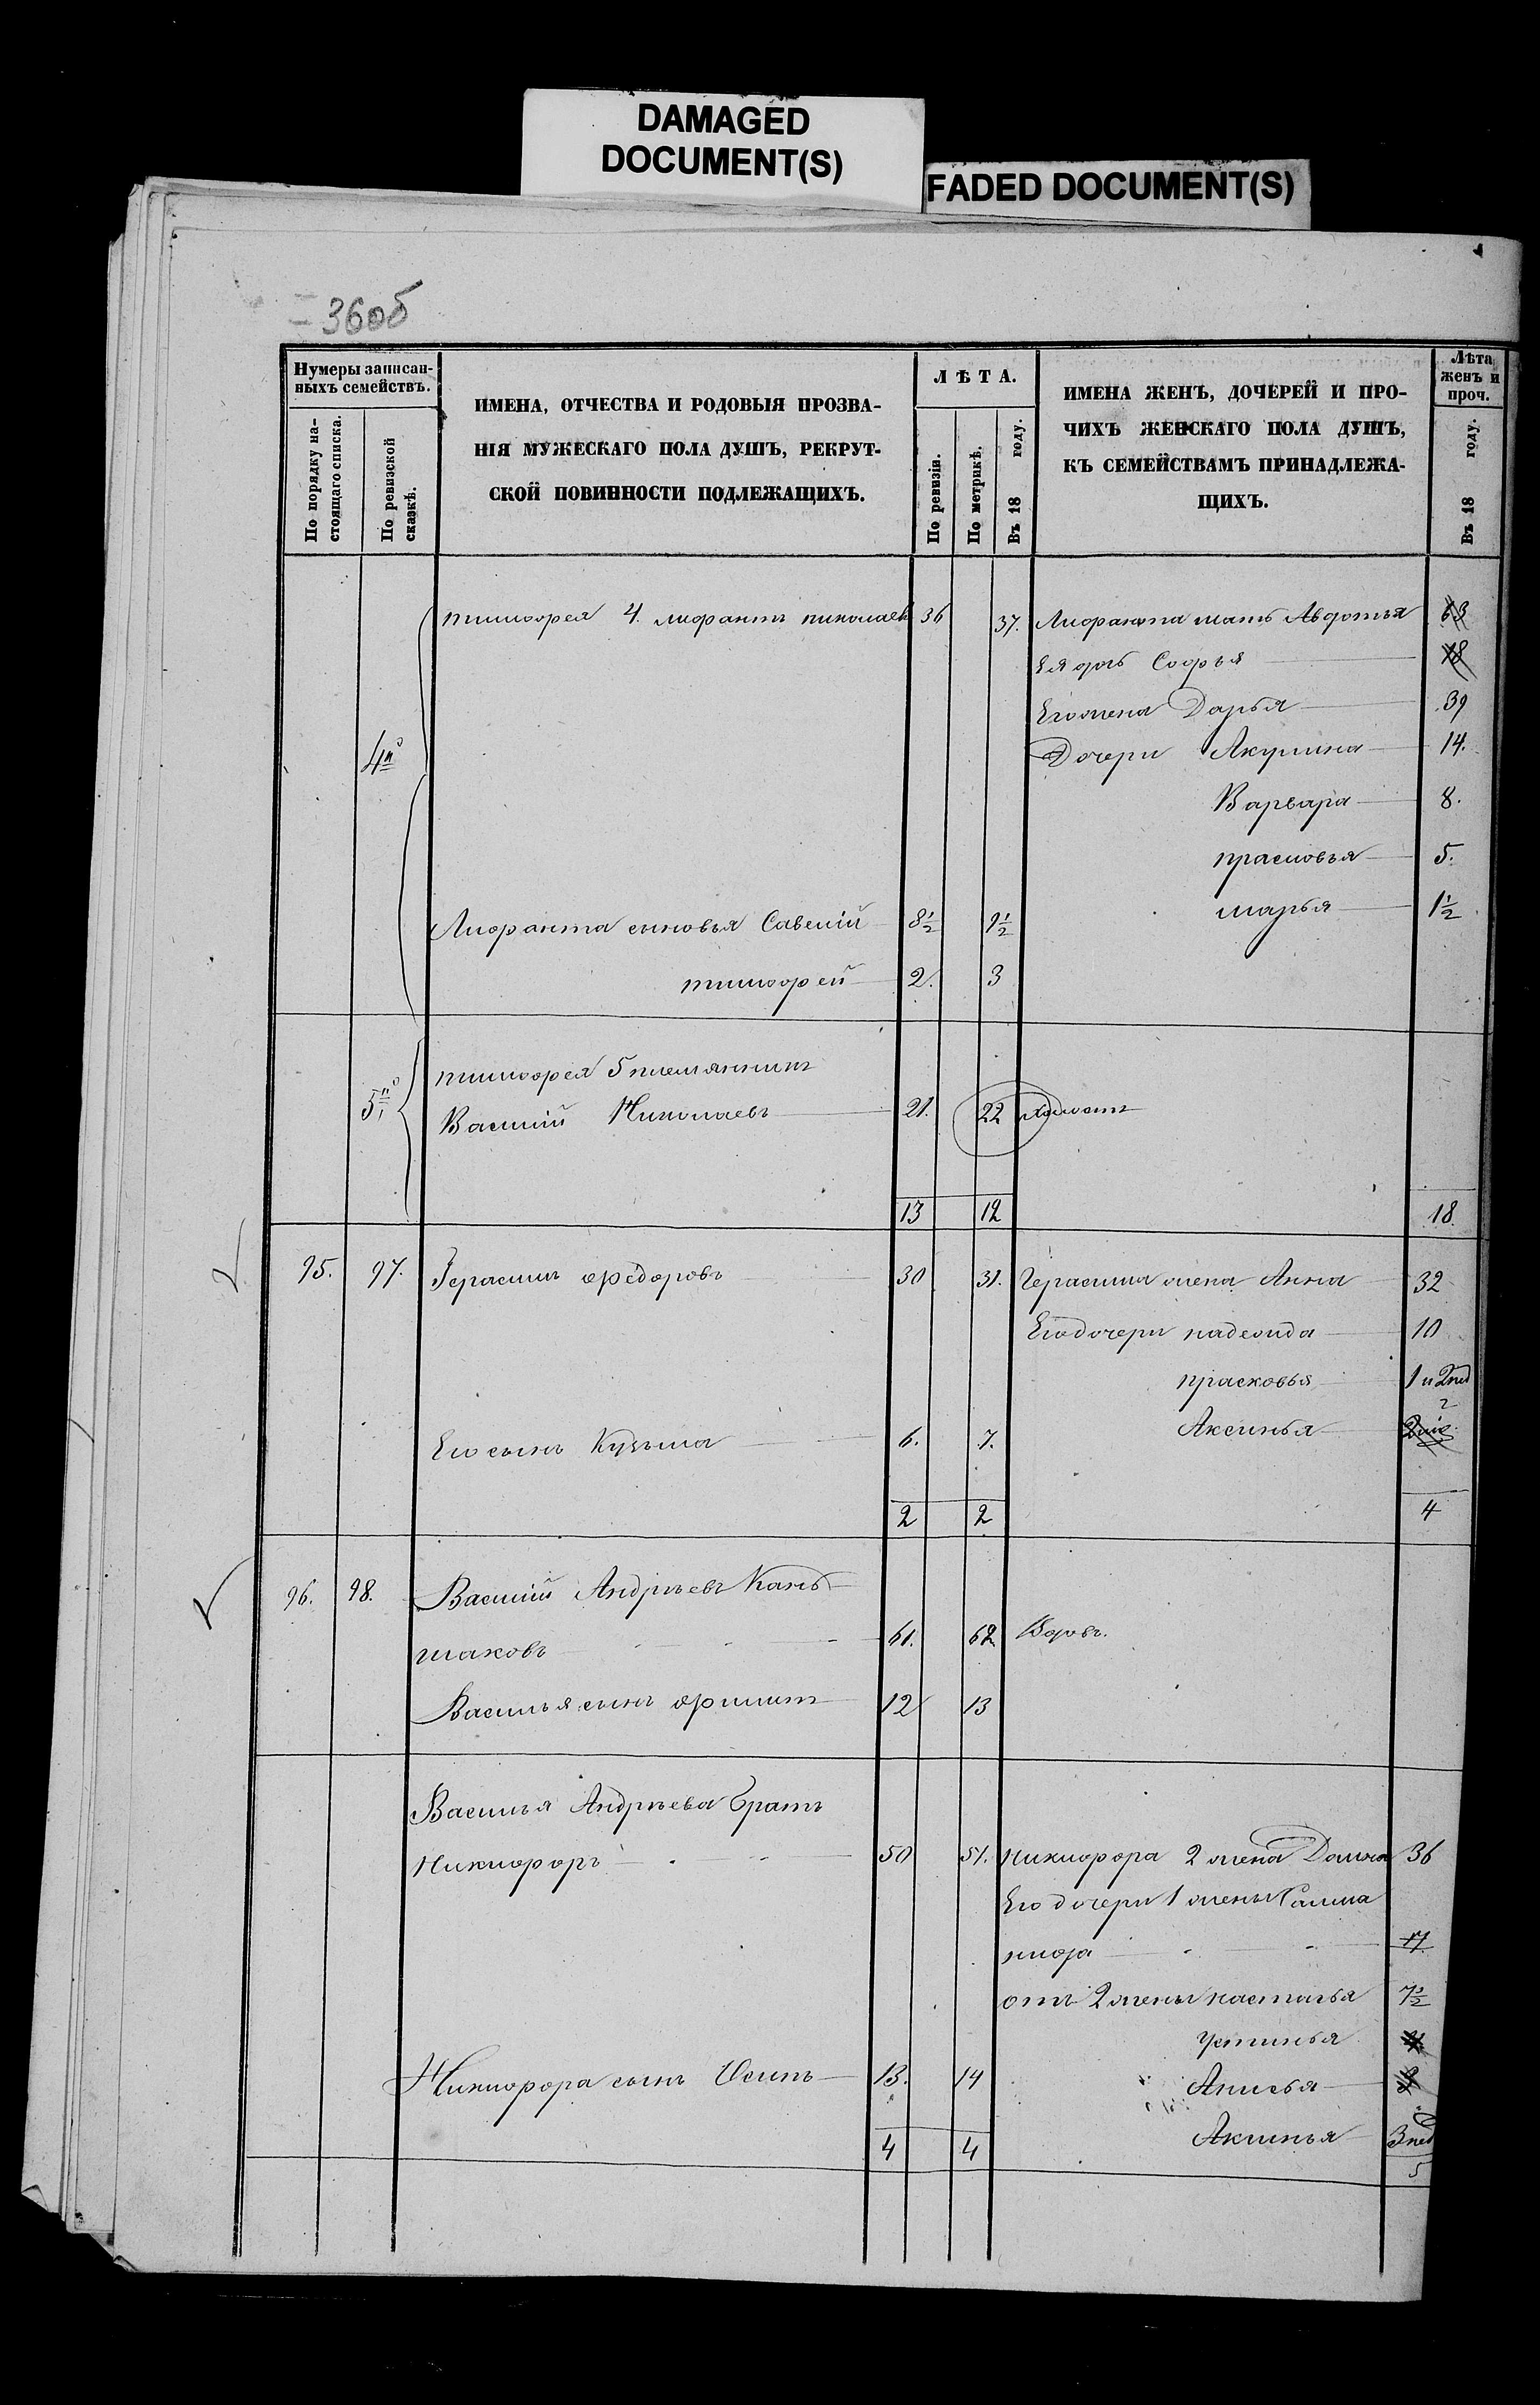 DAMAGED
DOCUMENT(S)
FADED DOCUMENT(S)
36об
Нумеры записан-
ныхъ семействъ.
По порядку на-
стоящаго списка.
По ревизской
сказкѣ.
ИМЕНА, ОТЧЕСТВА И РОДОВЫЯ ПРОЗВА-
НІЯ МУЖЕСКАГО ПОЛА ДУШЪ, РЕКРУТ-
СКОЙ ПОВИННОСТИ ПОДЛЕЖАЩИХЪ.
ЛѢТА.
По ревизіи.
По метрикѣ.
Въ 18 году.
ИМЕНА ЖЕНЪ, ДОЧЕРЕЙ И ПРО-
ЧИХЪ ЖЕНСКАГО ПОЛА ДУШЪ,
КЪ СЕМЕЙСТВАМЪ ПРИНАДЛЕЖА-
ЩИХЪ.
Лѣта
женъ и
проч.
Въ 18 году.
тимофея 4. николаев 36 37. мать Авдотья 63
Ея дочь Софья 18
Его жена Дарья 39
4й
Дочери Акулина 14.
Варвара 8.
прасковья 5.
сыновья Савелій 8½ 9½ марья 1½
тимофей 2. 3
тимофея 5 племянникъ
5й Василій Николаевъ 21. 22 холостъ
13 12 18
95. 97. Герасимъ Федоровъ 30 31. Герасима жена Анна 32
Его дочери надежда 10
прасковья 1 и 2 нед
Его сынъ Кузьма 6. 7. Аксинья
2 2 4
96. 98. Василій Андрѣевъ Кань
шаковъ 61. 62 Вдовъ.
Василья сынъ филипъ 12 13
Василья Андрѣева братъ
Никифоръ 50 51. никифора 2 жена Домна 36
Его дочери 1 жены
17
отъ 2 жены настасья 7½
устинья
Никифора сынъ Осипъ 13. 14 Анисья
4 4 Аксинья 3 нед
5